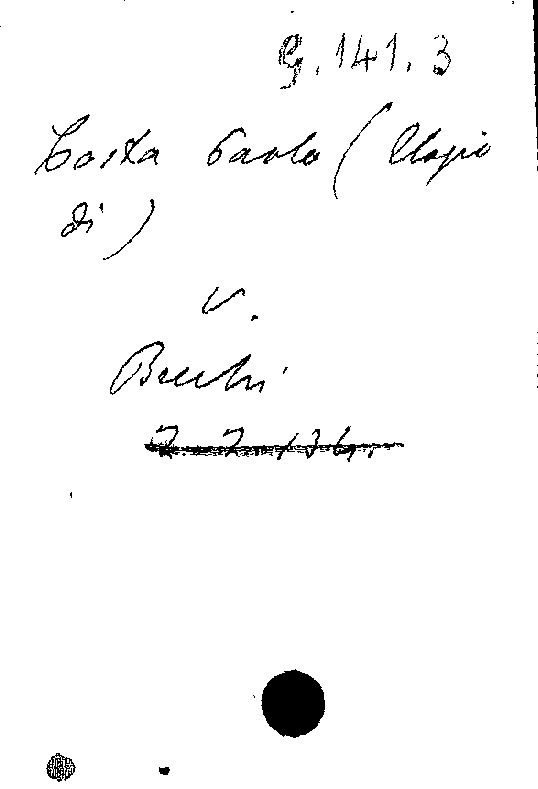 G. 141. 3
Costa Paolo (Elogio
di)
v.
Becchi